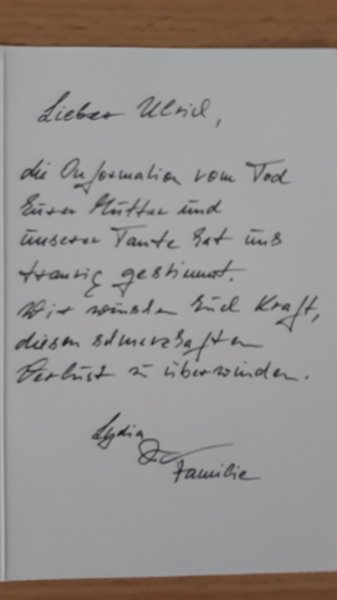 Lieber Ulrich,
die Information vom Tod
Eurer Mutter und
unserer Tante hat uns
traurig gestimmt.
Wir wünschen Euch Kraft,
diesen schmerzhaften
Verlust zu überwinden.
Lydia
&
Familie